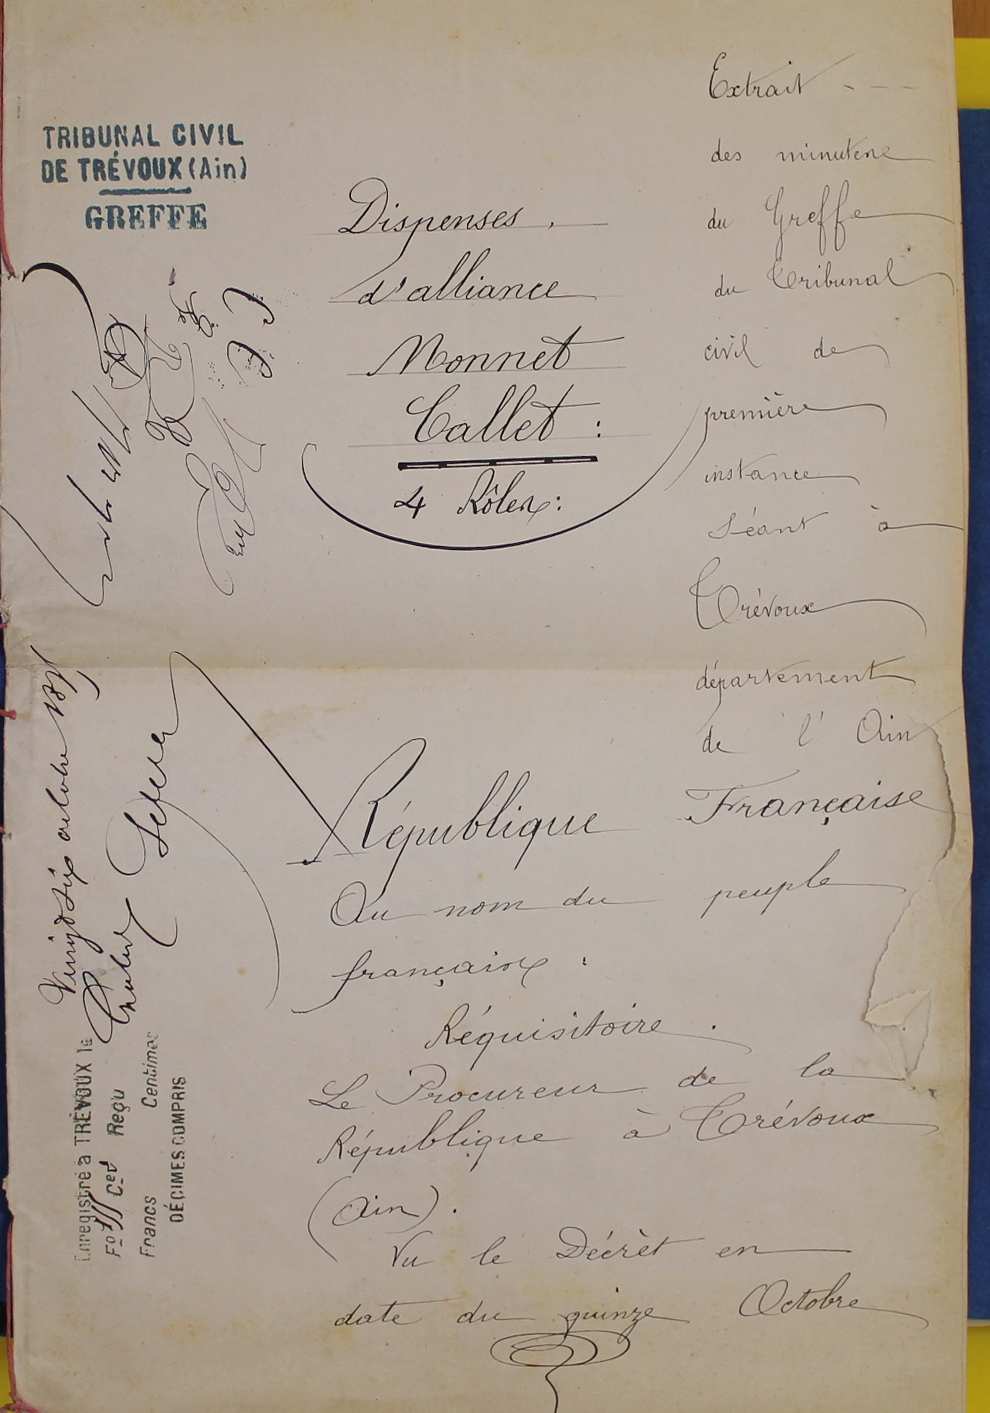 TRIBUNAL CIVIL
DE TRÉVOUX (Ain)
GREFFE
Dispenses.
d'alliance
Monnet
Callet :
4 Rôles :
Extrait
des minutes
du Greffe
du Tribunal
civil de
première
instance
Séant à
Trévoux
département
de l'Ain
République Française
Au nom du peuple
français :
Réquisitoire.
Le Procureur de la
République à Trévoux
(Ain).
Vu le Décrèt en
date du quinze Octobre
Enregistré à TRÉVOUX le
Vingt six octobre
Fo 111 Cet Reçu
Francs Centimes
DÉCIMES COMPRIS